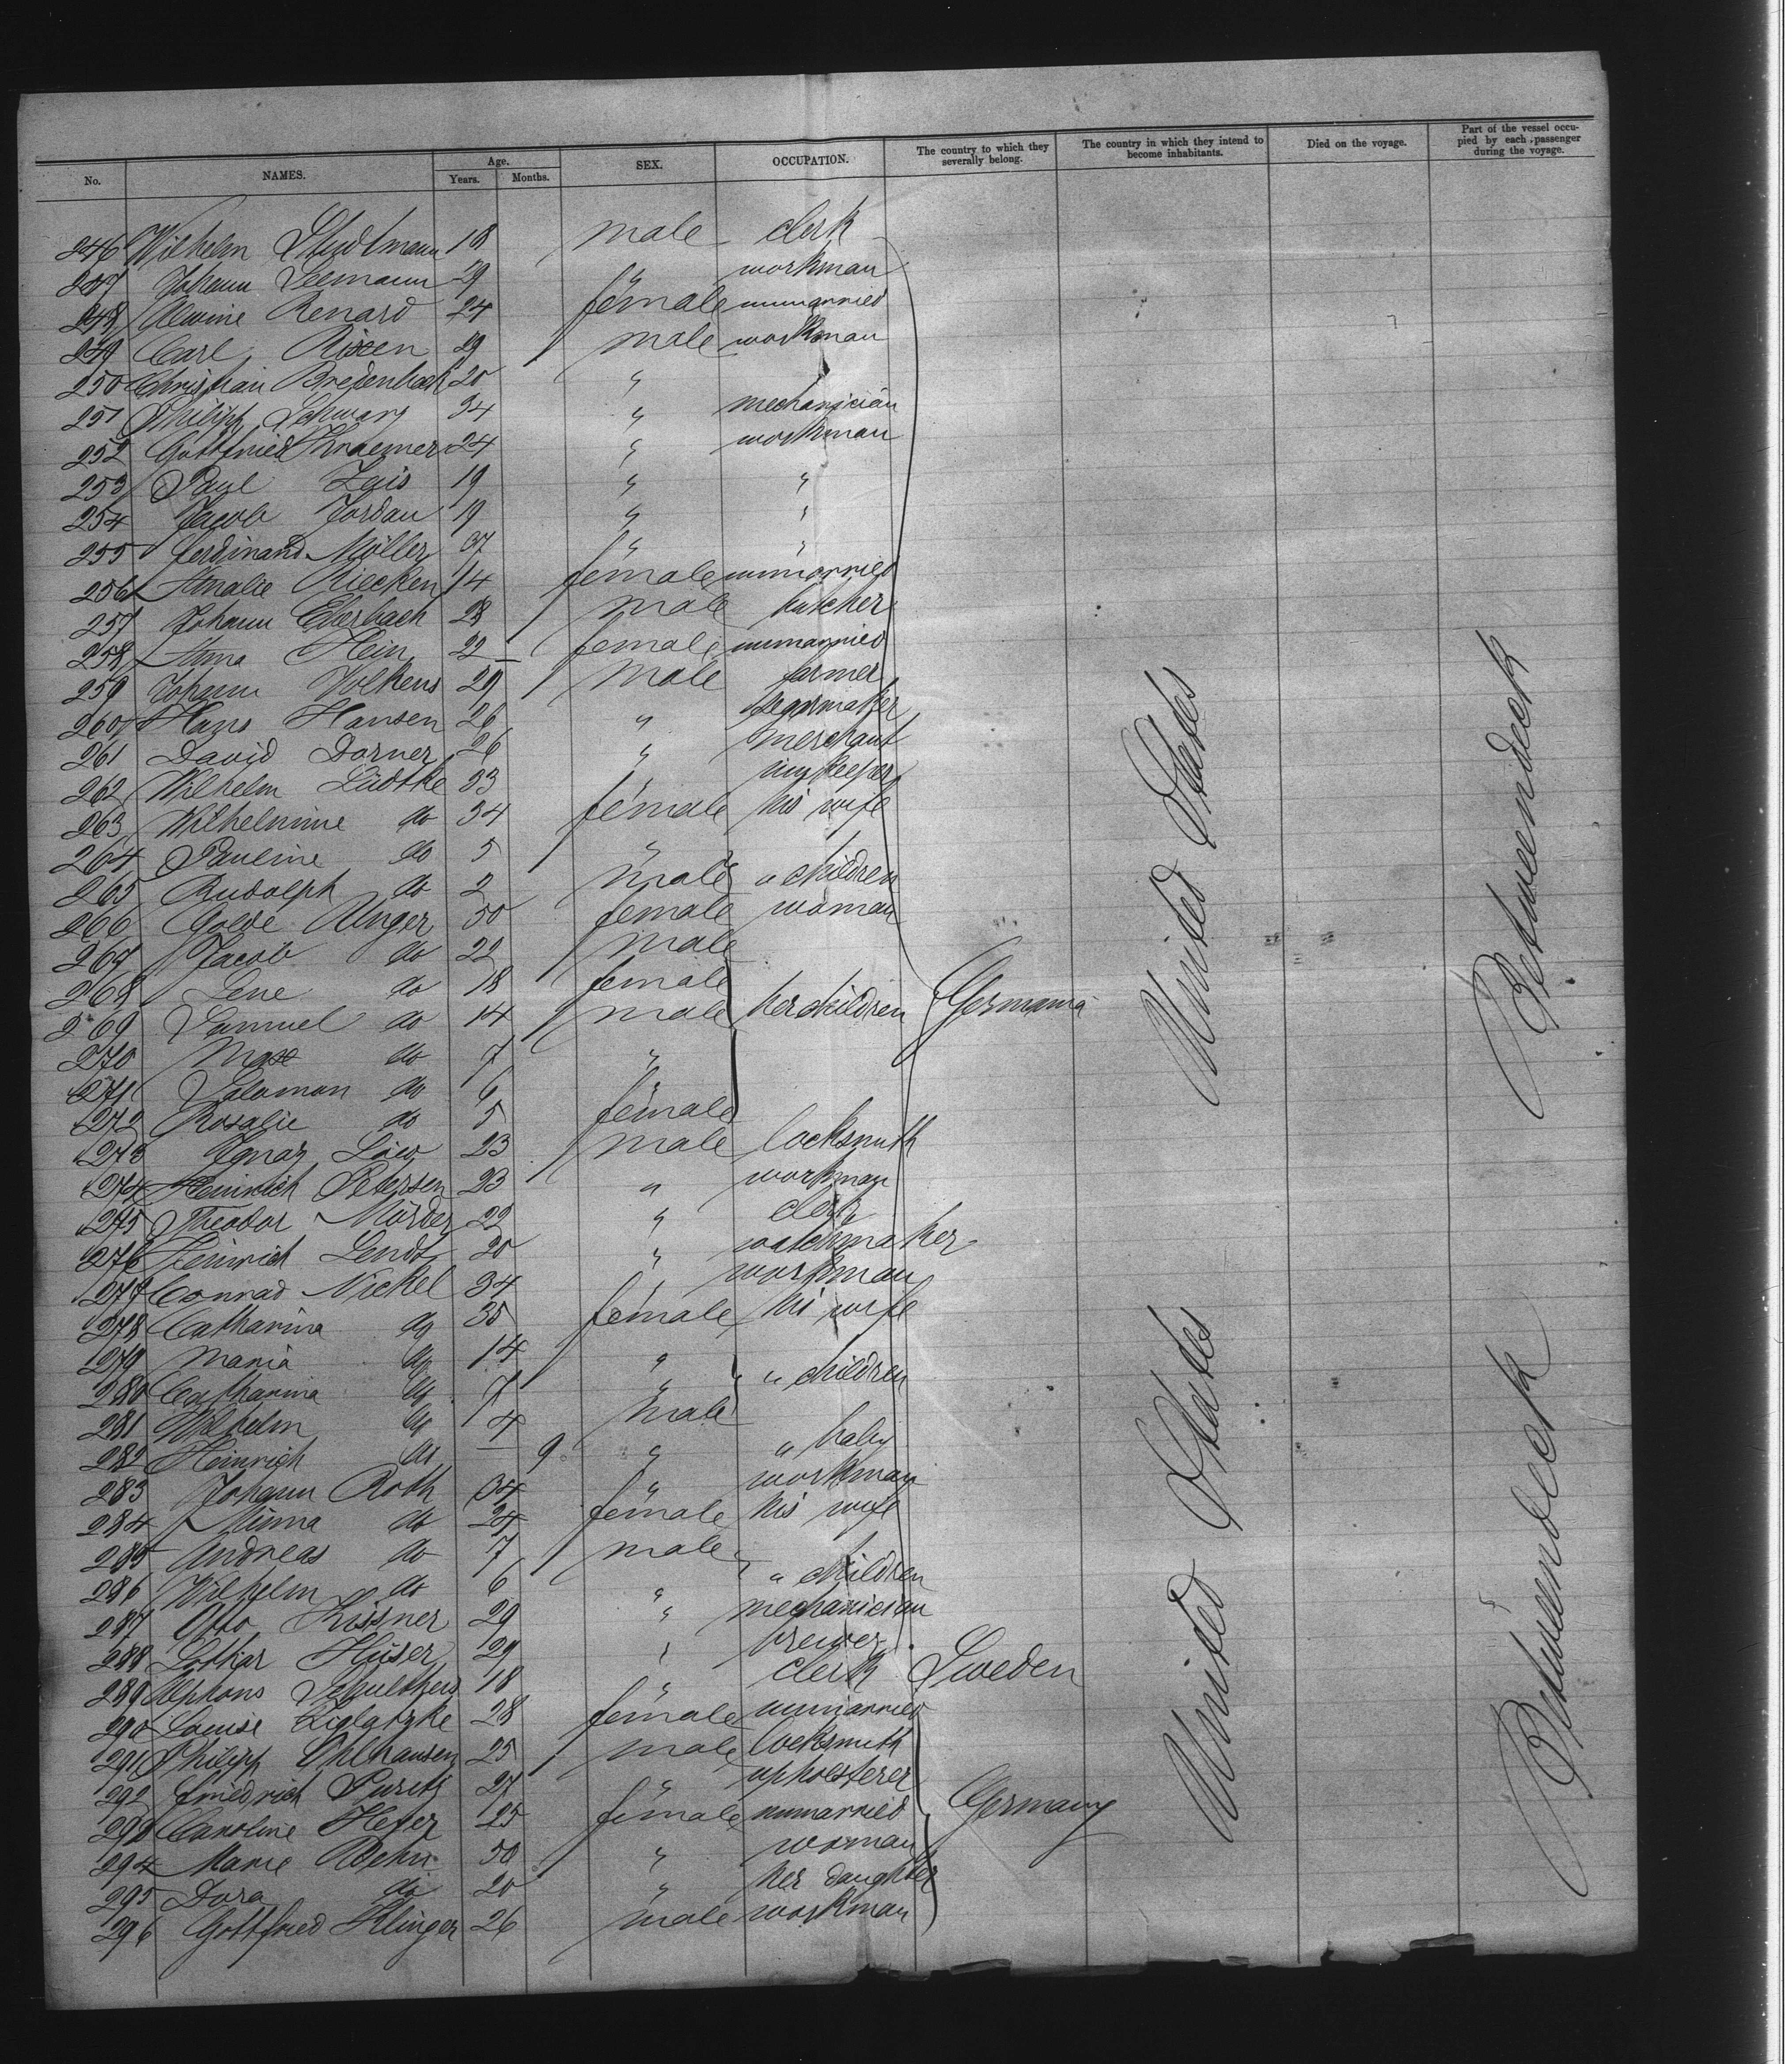 No. NAMES. Age. Years. Months. SEX. OCCUPATION. The country to which they severally belong. The country in which they intend to become inhabitants. Died on the voyage. Part of the vessel occupied by each passenger during the voyage.
246 Wilhelm 18 male clerk
247 Johann Seemann 29 " workman
248 Alwine Renard 24 female unmarried
249 Carl Rixen 29 male workman
250 Christian Bredenbach 20 "
251 Philipp Schwarz 34 " mechanician
252 Gottfried Kraemer 24 " workman
253 Paul Zais 19 " "
254 Jacob Jordan 19 " "
255 Ferdinand Möller 37 " "
256 Amalie Riecken 14 female unmarried
257 Johann Eberbach 28 male butcher
258 Anna Hein 22 female unmarried
259 Johann Volkens 29 male farmer
260 Hans Hansen 26 " segarmaker
261 David Dorner 26 " merchant
262 Wilhelm Lüdtke 33 " innkeeper
263 Wilhelmine do 34 female his wife
264 Pauline do 5 "
265 Rudolph do 2 male " children
266 Golde Unger 50 female woman
267 Jacob do 22 male
268 Lene do 18 female
269 Samuel do 14 male her children Germania
270 Max do 7 "
271 Salomon do 6 "
272 Rosalie do 5 female
273 Ignaz Löw 23 male locksmith
274 Heinrich Petersen 23 " workman
275 Theodor 22 " clerk
276 Heinrich Lendt 20 " watchmaker
277 Conrad Nickel 34 " workman
278 Catharina do 35 female his wife
279 Maria do 14 "
280 Catharina do 7 " " children
281 Wilhelm do 4 male
282 Heinrich do — 9 " " baby
283 Johann Roth 34 " workman
284 Minna do 24 female his wife
285 Andreas do 7 male
286 Wilhelm do 6 " " children
287 Otto Kissner 29 " mechanician
288 Lothar Hüser 29 " brewer
289 Alphons Schultheis 18 " clerk Sweden
290 Louise 28 female unmarried
291 Philipp Ohlhausen 25 male locksmith
292 Friedrich Puritz 27 " upholsterer
293 Caroline 25 female unmarried Germany
294 Marie Behn 50 " woman
295 Dora do 20 " her daughter
296 Gottfried Klinger 26 male workman
United States
United States
Betweendeck
Betweendeck